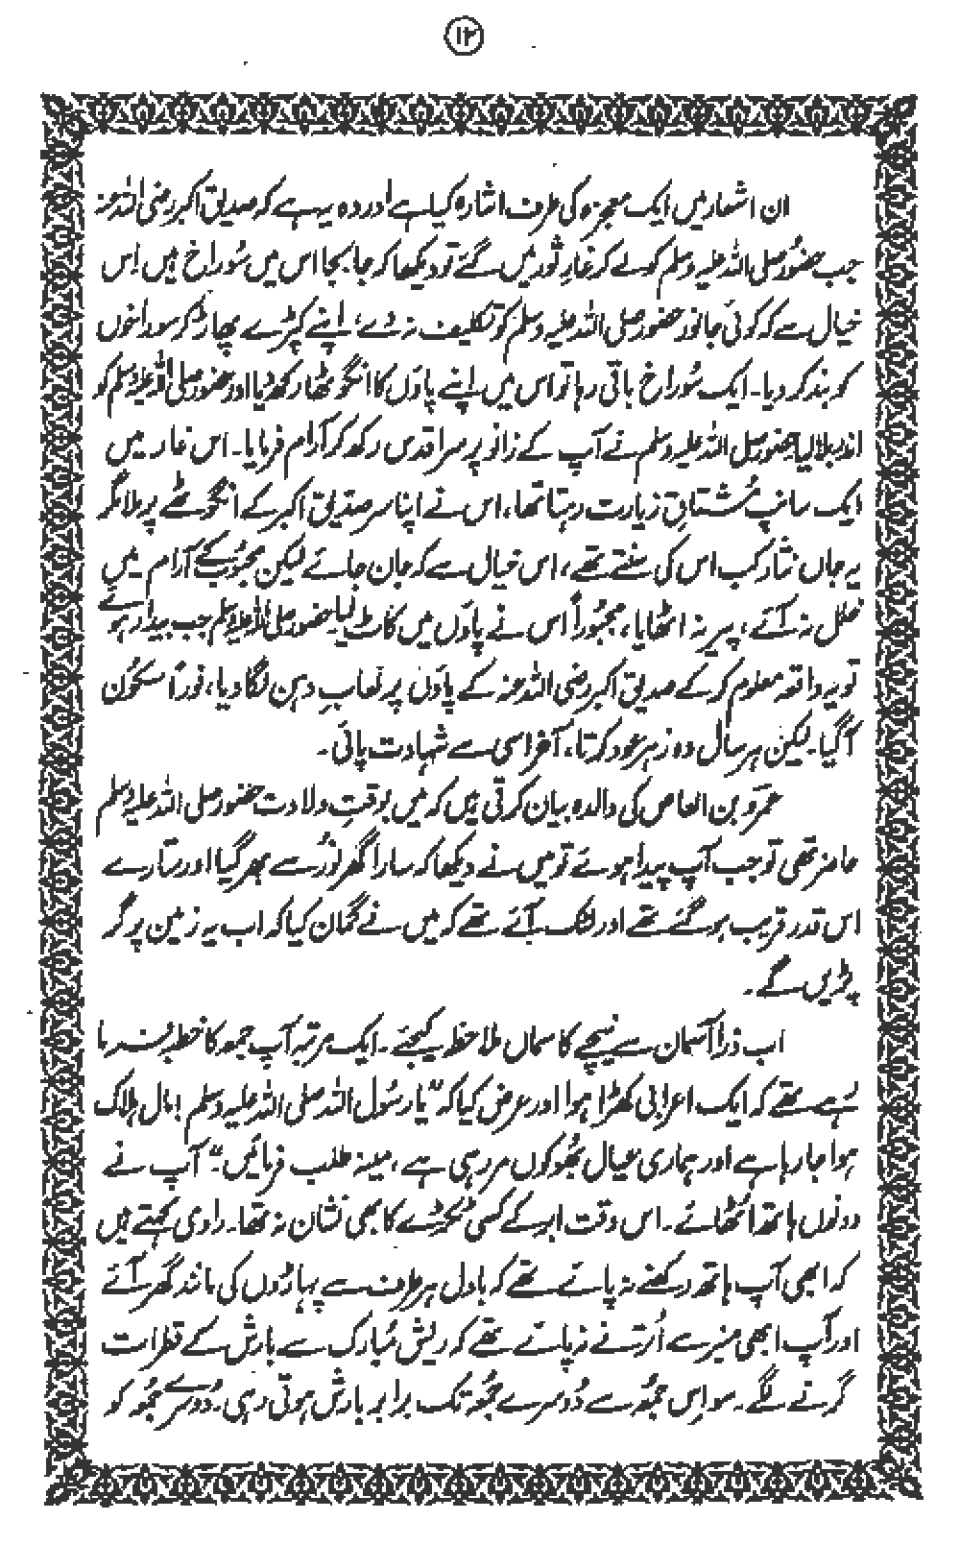 ۱۲
ان اشعار میں ایک معجزہ کی طرف اشارہ کیا ہے اور وہ یہ ہے کہ صدیق اکبر رضی اللہ عنہ
جب حضور صلی اللہ علیہ وسلم کو لے کر غارِ ثور میں گئے تو دیکھا کہ جا بجا اس میں سُوراخ ہیں اِس
خیال سے کہ کوئی جانور حضور صلی اللہ علیہ وسلم کو تکلیف نہ دے، اپنے کپڑے پھاڑ کر سوراخوں
کو بند کر دیا۔ ایک سُوراخ باقی رہا تو اس میں اپنے پاؤں کا انگوٹھا رکھ دیا اور حضور صلی اللہ علیہ وسلم کو
اندر بلا لیا حضور صلی اللہ علیہ وسلم نے آپ کے زانو پر سر اقدس رکھ کر آرام فرمایا۔ اس غار میں
ایک سانپ مُشتاقِ زیارت رہتا تھا، اس نے اپنا سر صدیق اکبر کے انگوٹھے پر ملا مگر
یہ جاں نثار کب اس کی سنتے تھے، اس خیال سے کہ جان جائے لیکن محبُوب کے آرام میں
خلل نہ آئے، پیر نہ اٹھایا، مجبُوراً اس نے پاؤں میں کاٹ لیا۔ حضور صلی اللہ علیہ وسلم جب بیدار ہوئے
تو یہ واقعہ معلوم کر کے صدیق اکبر رضی اللہ عنہ کے پاؤں پر لعابِ دہن لگا دیا، فوراً سکُون
آ گیا۔ لیکن ہر سال وہ زہر عود کرتا، آخر اسی سے شہادت پائی۔
عمرو بن العاص کی والدہ بیان کرتی ہیں کہ میں بوقتِ ولادت حضور صلی اللہ علیہ وسلم
حاضر تھی تو جب آپ پیدا ہوئے تو میں نے دیکھا کہ سارا گھر نُور سے بھر گیا اور ستارے
اس قدر قریب ہو گئے تھے اور لٹک آئے تھے کہ میں نے گمان کیا کہ اب یہ زمین پر گر
پڑیں گے۔
اب ذرا آسمان سے نیچے کا سماں ملاحظہ کیجئے۔ ایک مرتبہ آپ جمعہ کا خطبہ فرما
رہے تھے کہ ایک اعرابی کھڑا ہوا اور عرض کیا کہ "یا رسُول اللہ صلی اللہ علیہ وسلم! مال ہلاک
ہوا جا رہا ہے اور ہماری عیال بھُوکوں مر رہی ہے، مینہ طلب فرمائیں۔" آپ نے
دونوں ہاتھ اُٹھائے۔ اس وقت ابر کے کسی ٹکڑے کا بھی نشان نہ تھا۔ راوی کہتے ہیں
کہ ابھی آپ ہاتھ رکھنے نہ پائے تھے کہ بادل ہر طرف سے پہاڑوں کی مانند گھر آئے
اور آپ ابھی منبر سے اُترنے نہ پائے تھے کہ ریش مُبارک سے بارش کے قطرات
گرنے لگے۔ سو اِس جمُعہ سے دُوسرے جمُعہ تک برابر بارش ہوتی رہی۔ دُوسرے جمُعہ کو